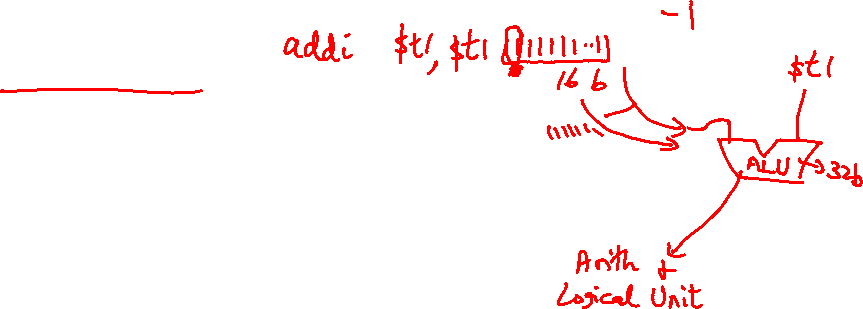 -1
addi $t1, $t1 1 11111..11
16 b
$t1
111111
ALU
32b
Arith +
Logical Unit